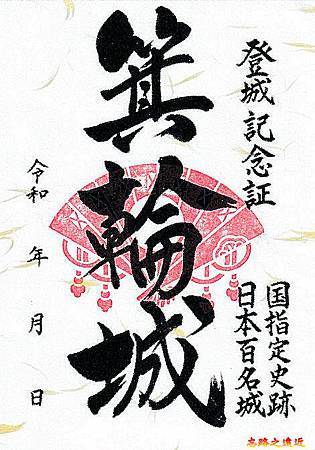 登城記念証
国指定史跡
日本百名城
箕輪城
令和 年 月 日
古跡之遠近